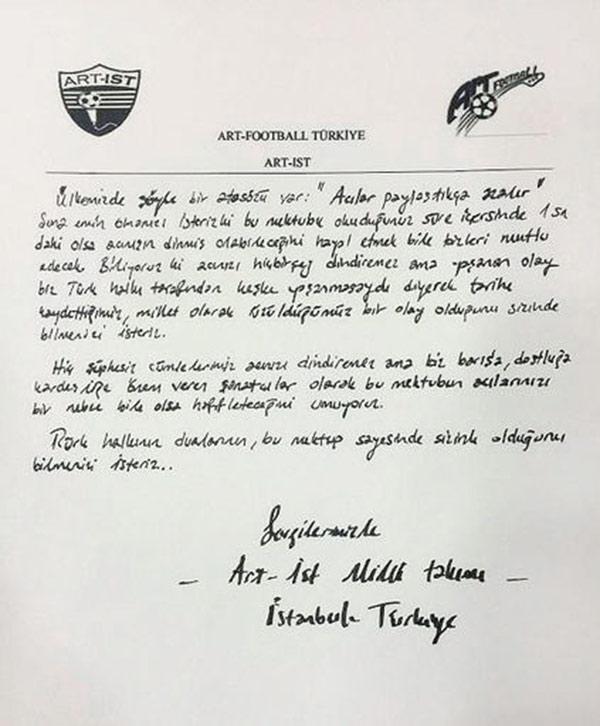 ART-IST
ART FOOTBALL
ART-FOOTBALL TÜRKİYE
ART-IST
Ülkemizde şöyle bir atasözü var: "Acılar paylaştıkça azalır"
Şuna emin olmanızı isterizki bu mektubu okuduğunuz süre içersinde 1 sn
dahi olsa acınızın dinmiş olabileceğini hayal etmek bile bizleri mutlu
edecek. Biliyoruz ki acınızı hiçbirşey dindiremez ama yaşanan olay
biz Türk halkı tarafından keşke yaşanmasaydı diyerek tarihe
kaydettiğimiz, millet olarak üzüldüğümüz bir olay olduğunu sizinde
bilmenizi isteriz.
Hiç şüphesiz cümlelerimiz acınızı dindiremez ama biz barışa, dostluğa
kardeşliğe önem veren sanatcılar olarak bu mektubun acılarınızı
bir nebze bile olsa hafifleteceğini umuyoruz.
Türk halkının dualarının, bu mektup sayesinde sizinle olduğunu
bilmenizi isteriz...
Sevgilerimizle
- Art-ist Milli takımı -
İstanbul Türkiye